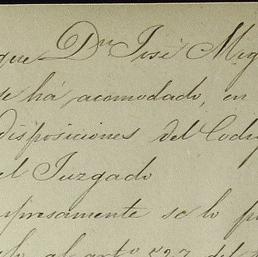 que Dn José Mig
se há acomodado, en
disposiciones del Codi
el Juzgado
spresamente se lo p
art° 527 del